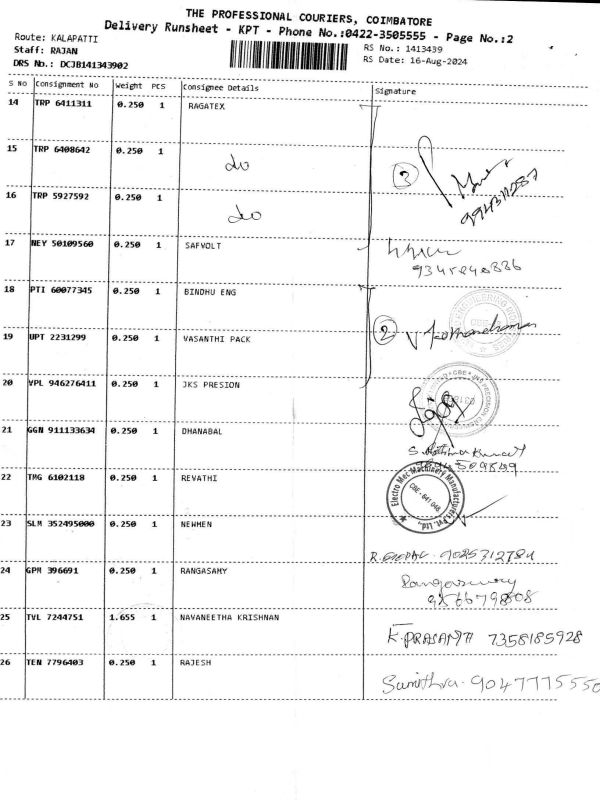 THE PROFESSIONAL COURIERS, COIMBATORE
Delivery Runsheet - KPT - Phone No.:0422-3505555 - Page No.:2
Route: KALAPATTI
RS No.: 1413439
Staff: RAJAN
RS Date: 16-Aug-2024
DRS No.: DCJB141343902
S NO Consignment No Weight PCS Consignee Details Signature
14 TRP 6411311 0.250 1 RAGATEX
15 TRP 6408642 0.250 1 do
3
16 TRP 5927592 0.250 1 do
17 NEY 50109560 0.250 1 SAFVOLT
18 PTI 60077345 0.250 1 BINDHU ENG
19 UPT 2231299 0.250 1 VASANTHI PACK
2
20 VPL 946276411 0.250 1 JKS PRESION
21 GGN 911133634 0.250 1 DHANABAL
22 TMG 6102118 0.250 1 REVATHI
Electro Mec Machinery Manufacturers Pvt. Ltd.,
CBE - 641 048.
23 SLM 352495000 0.250 1 NEWHEN
24 GPM 396691 0.250 1 RANGASAMY
Rangaswamy
25 TVL 7244751 1.655 1 NAVANEETHA KRISHNAN
K. PRASANTH 7358185928
26 TEN 7796403 0.250 1 RAJESH
Sumithra. 9047775550